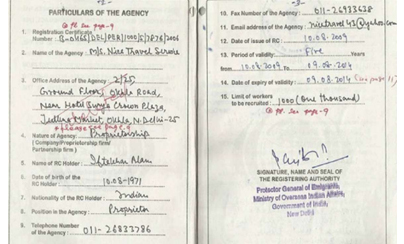 PARTICULARS OF THE AGENCY
1. Registration Certificate
Number
2. Name of the Agency : M/s. Nice Travel Service
3. Office Address of the Agency :
Ground Floor, Okhla Road,
Near Hotel Surya Crown Plaza,
Okhla, N.Delhi-25
4. Nature of Agency : Proprietorship
(Company/Proprietorship firm/
Partnership firm)
5. Name of the RC Holder : Iftekhar Alam
6. Date of birth of the
RC Holder : 10.08-1971
7. Nationality of the RC Holder : Indian
8. Position in the Agency : Proprietor
9. Telephone Number
of the Agency : 011-26833786
10. Fax Number of the Agency : 011-26933638
11. Email address of the Agency : nicetravel43@yahoo.com
12. Date of issue of RC : 10.08-2009
13. Period of validity : Five Years
from 10.08-2009 to 09.08-2014
14. Date of expiry of validity : 09.08.2014
15. Limit of workers
to be recruited : 1000 (One thousand)
SIGNATURE, NAME AND SEAL OF
THE REGISTERING AUTHORITY
Protector General of Emigrants
Ministry of Overseas Indian Affairs
Government of India
New Delhi